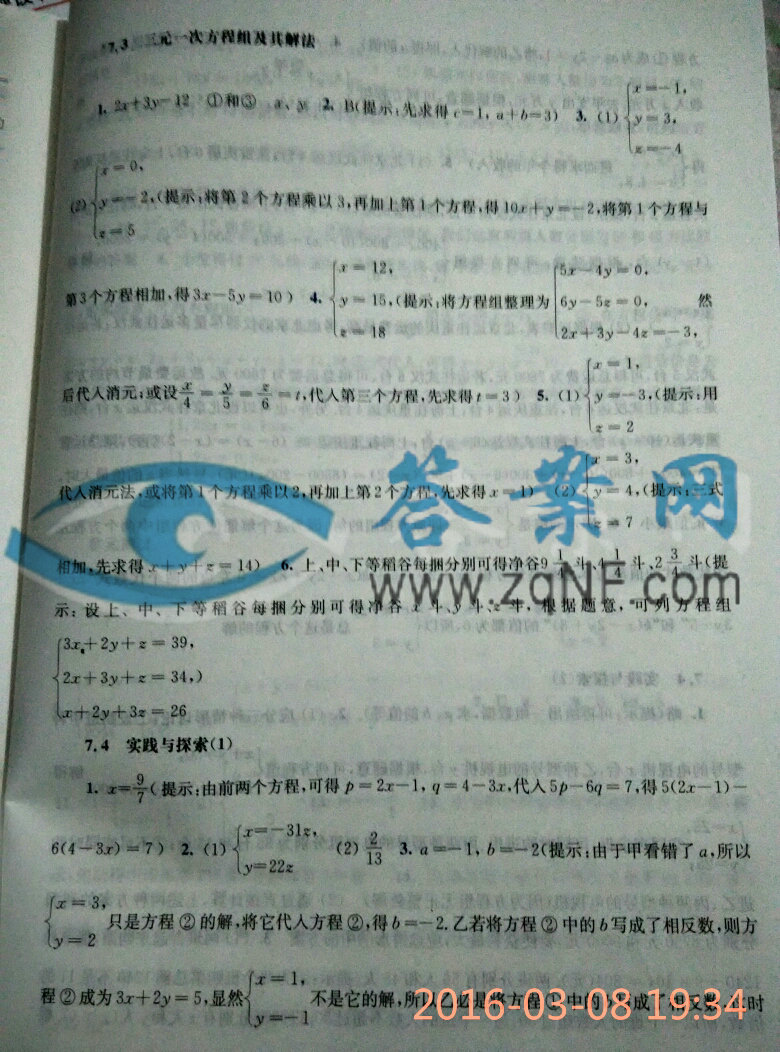 7.3 三元一次方程组及其解法
1. 2x+3y=12 ①和③ x、y 2. B(提示:先求得 c=1, a+b=3) 3. (1) {x=-1, y=3, z=-4
(2) {x=0, y=-2, z=5 (提示:将第2个方程乘以3,再加上第1个方程,得10x+y=-2,将第1个方程与
第3个方程相加,得3x-5y=10) 4. {x=12, y=15, z=18 (提示:将方程组整理为 {5x-4y=0, 6y-5z=0, 2x+3y-4z=-3, 然
后代入消元;或设 x/4=y/5=z/6=t,代入第三个方程,先求得t=3) 5. (1) {x=1, y=-3, z=2 (提示:用
代入消元法,或将第1个方程乘以2,再加上第2个方程,先求得x=1) (2) {x=3, y=4, z=7 (提示:三式
相加,先求得x+y+z=14) 6. 上、中、下等稻谷每捆分别可得净谷9 1/4斗、4 1/4斗、2 3/4斗(提
示:设上、中、下等稻谷每捆分别可得净谷 x 斗、y 斗、z 斗,根据题意,可列方程组
{3x+2y+z=39,
2x+3y+z=34,)
x+2y+3z=26
7.4 实践与探索(1)
1. x=9/7(提示:由前两个方程,可得 p=2x-1, q=4-3x,代入5p-6q=7,得5(2x-1)-
6(4-3x)=7) 2. (1) {x=-31z, y=22z (2) 2/13 3. a=-1, b=-2(提示:由于甲看错了a,所以
{x=3, y=2 只是方程②的解,将它代入方程②,得b=-2.乙若将方程②中的b写成了相反数,则方
程②成为3x+2y=5,显然 {x=1, y=-1 不是它的解,所以乙必是将方程①中的b写成了相反数,这时
答案网
www.zqNF.com
2016-03-08 19:34